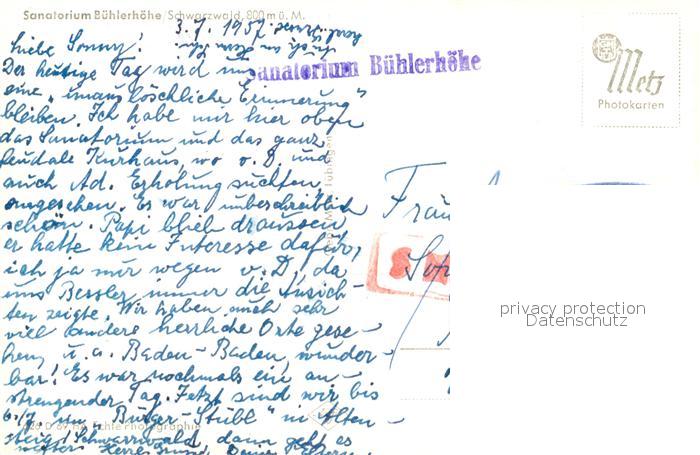 Sanatorium Bühlerhöhe/Schwarzwald, 800m ü. M.
3.7.1957.
Liebe Sonny!
Der heutige Tag wird uns
eine "unauslöschliche Erinnerung"
bleiben. Ich habe mir hier oben
das Sanatorium und das ganz
feudale Kurhaus, wo v. D. und
auch Ad. Erholung suchten
angesehen. Es war unbeschreiblich
schön. Papi blieb draussen,
er hatte kein Interesse dafür,
ich ja nur wegen v. D., da
uns Bessler immer die Ansich-
ten zeigte. Wir haben noch sehr
viel andere herrliche Orte gese-
hen, u. a. Baden-Baden, wunder-
bar! Es war nochmals ein an-
strengender Tag. Jetzt sind wir bis
im "Bürger-Stübl" in Alten-
steig/Schwarzwald, dann geht es
Sanatorium Bühlerhöhe
Metz
Photokarten
Frau
privacy protection
Datenschutz
Echte Photographie